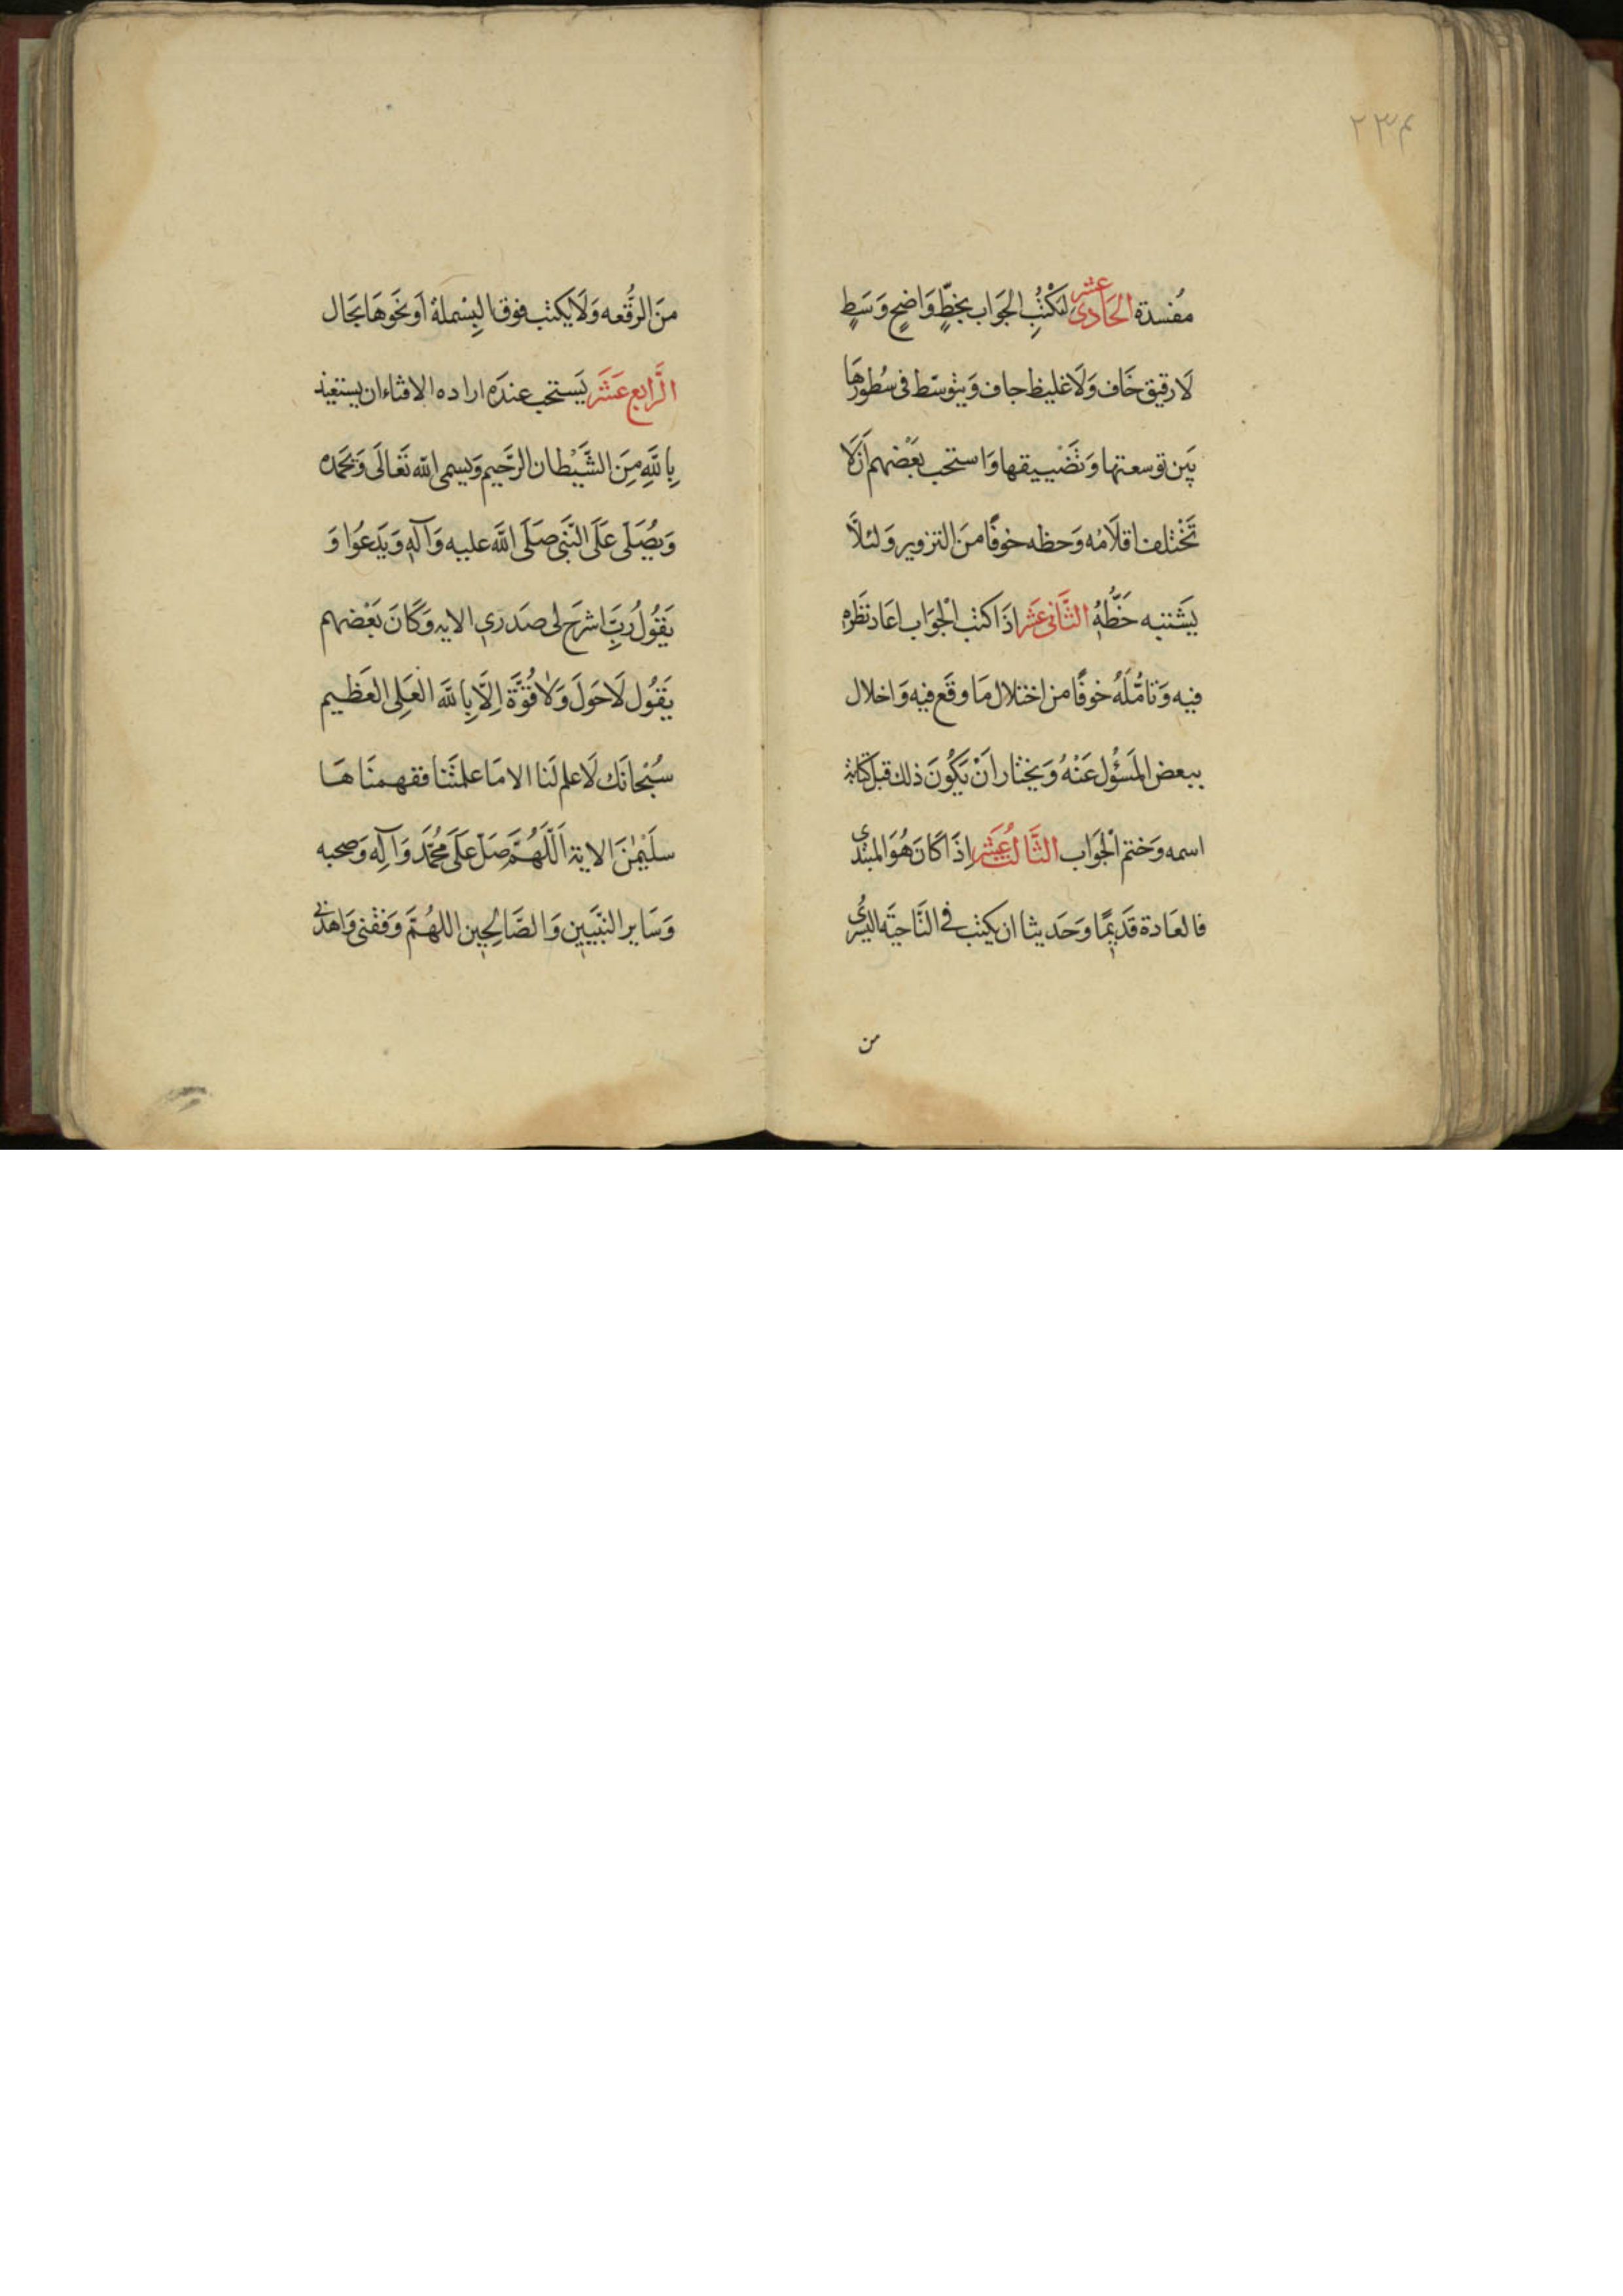 ٢٣٤
مُفسدة الحَادى عشر ليَكْتُبِ الجَوَاب بخطٍّ وَاضحٍ وَسَطٍ
لَا رقيق خَاف وَلَا غليظ جاف وَيتوسّط فى سُطورهَا
بَين توسعتها وَتَضْييقها وَاستحب بَعْضهم اَنْ لَا
تَخْتلف اقلَامُه وَحظه خوفًا منَ التزوير وَلئلّا
يَشتبه خَطُّهُ الثَّانى عَشر اذَا كتب الْجوَاب اعَاد نَظَره
فيه وَتَامُّلَهُ خوفًا من اختلال مَا وقَع فيه وَاخلال
ببعض المَسؤُل عَنْهُ وَيختار اَنْ يَكُونَ ذلك قبل كتابة
اسمه وَختم الْجَوَاب الثَّالثُ عَشر اِذَا كَانَ هُوَ المبتدى
فالعَادة قَديمًا وَحَديثا ان يكتب فى النَّاحيَة اليسرى
من
منَ الرقُعه وَلَا يكتب فوق البِسْملة اَو نَحوهَا بحَال
الرَّابع عَشَر يَستحب عندَه اراده الافتاء ان يستعيذ
بِاللّهِ مِنَ الشَّيْطان الرَّجيم وَيسمى اللّه تَعَالَى وَيحمده
وَيصَلى عَلَى النَّبى صَلَى اللَّه عليه وَآلهِ وَيَدعُوا وَ
يَقوُلُ رَبِّ اشرَح لى صَدرى الايه وَكَانَ بَعْضهم
يَقُول لَا حَولَ وَلَا قُوَّة اِلَّا بِاللَّه العَلِى العَظيم
سُبْحانَك لَا علم لَنا الا مَا علمتَنا ففهمنَاهَا
سلَيْمٰنَ الاية اَللّهُمَّ صَل عَلَى محُمَّد وَآلِه وَصحبه
وَسَاير النَّبيَين وَالصَّالِحين اللهُمَّ وَفقنى وَاهدنى